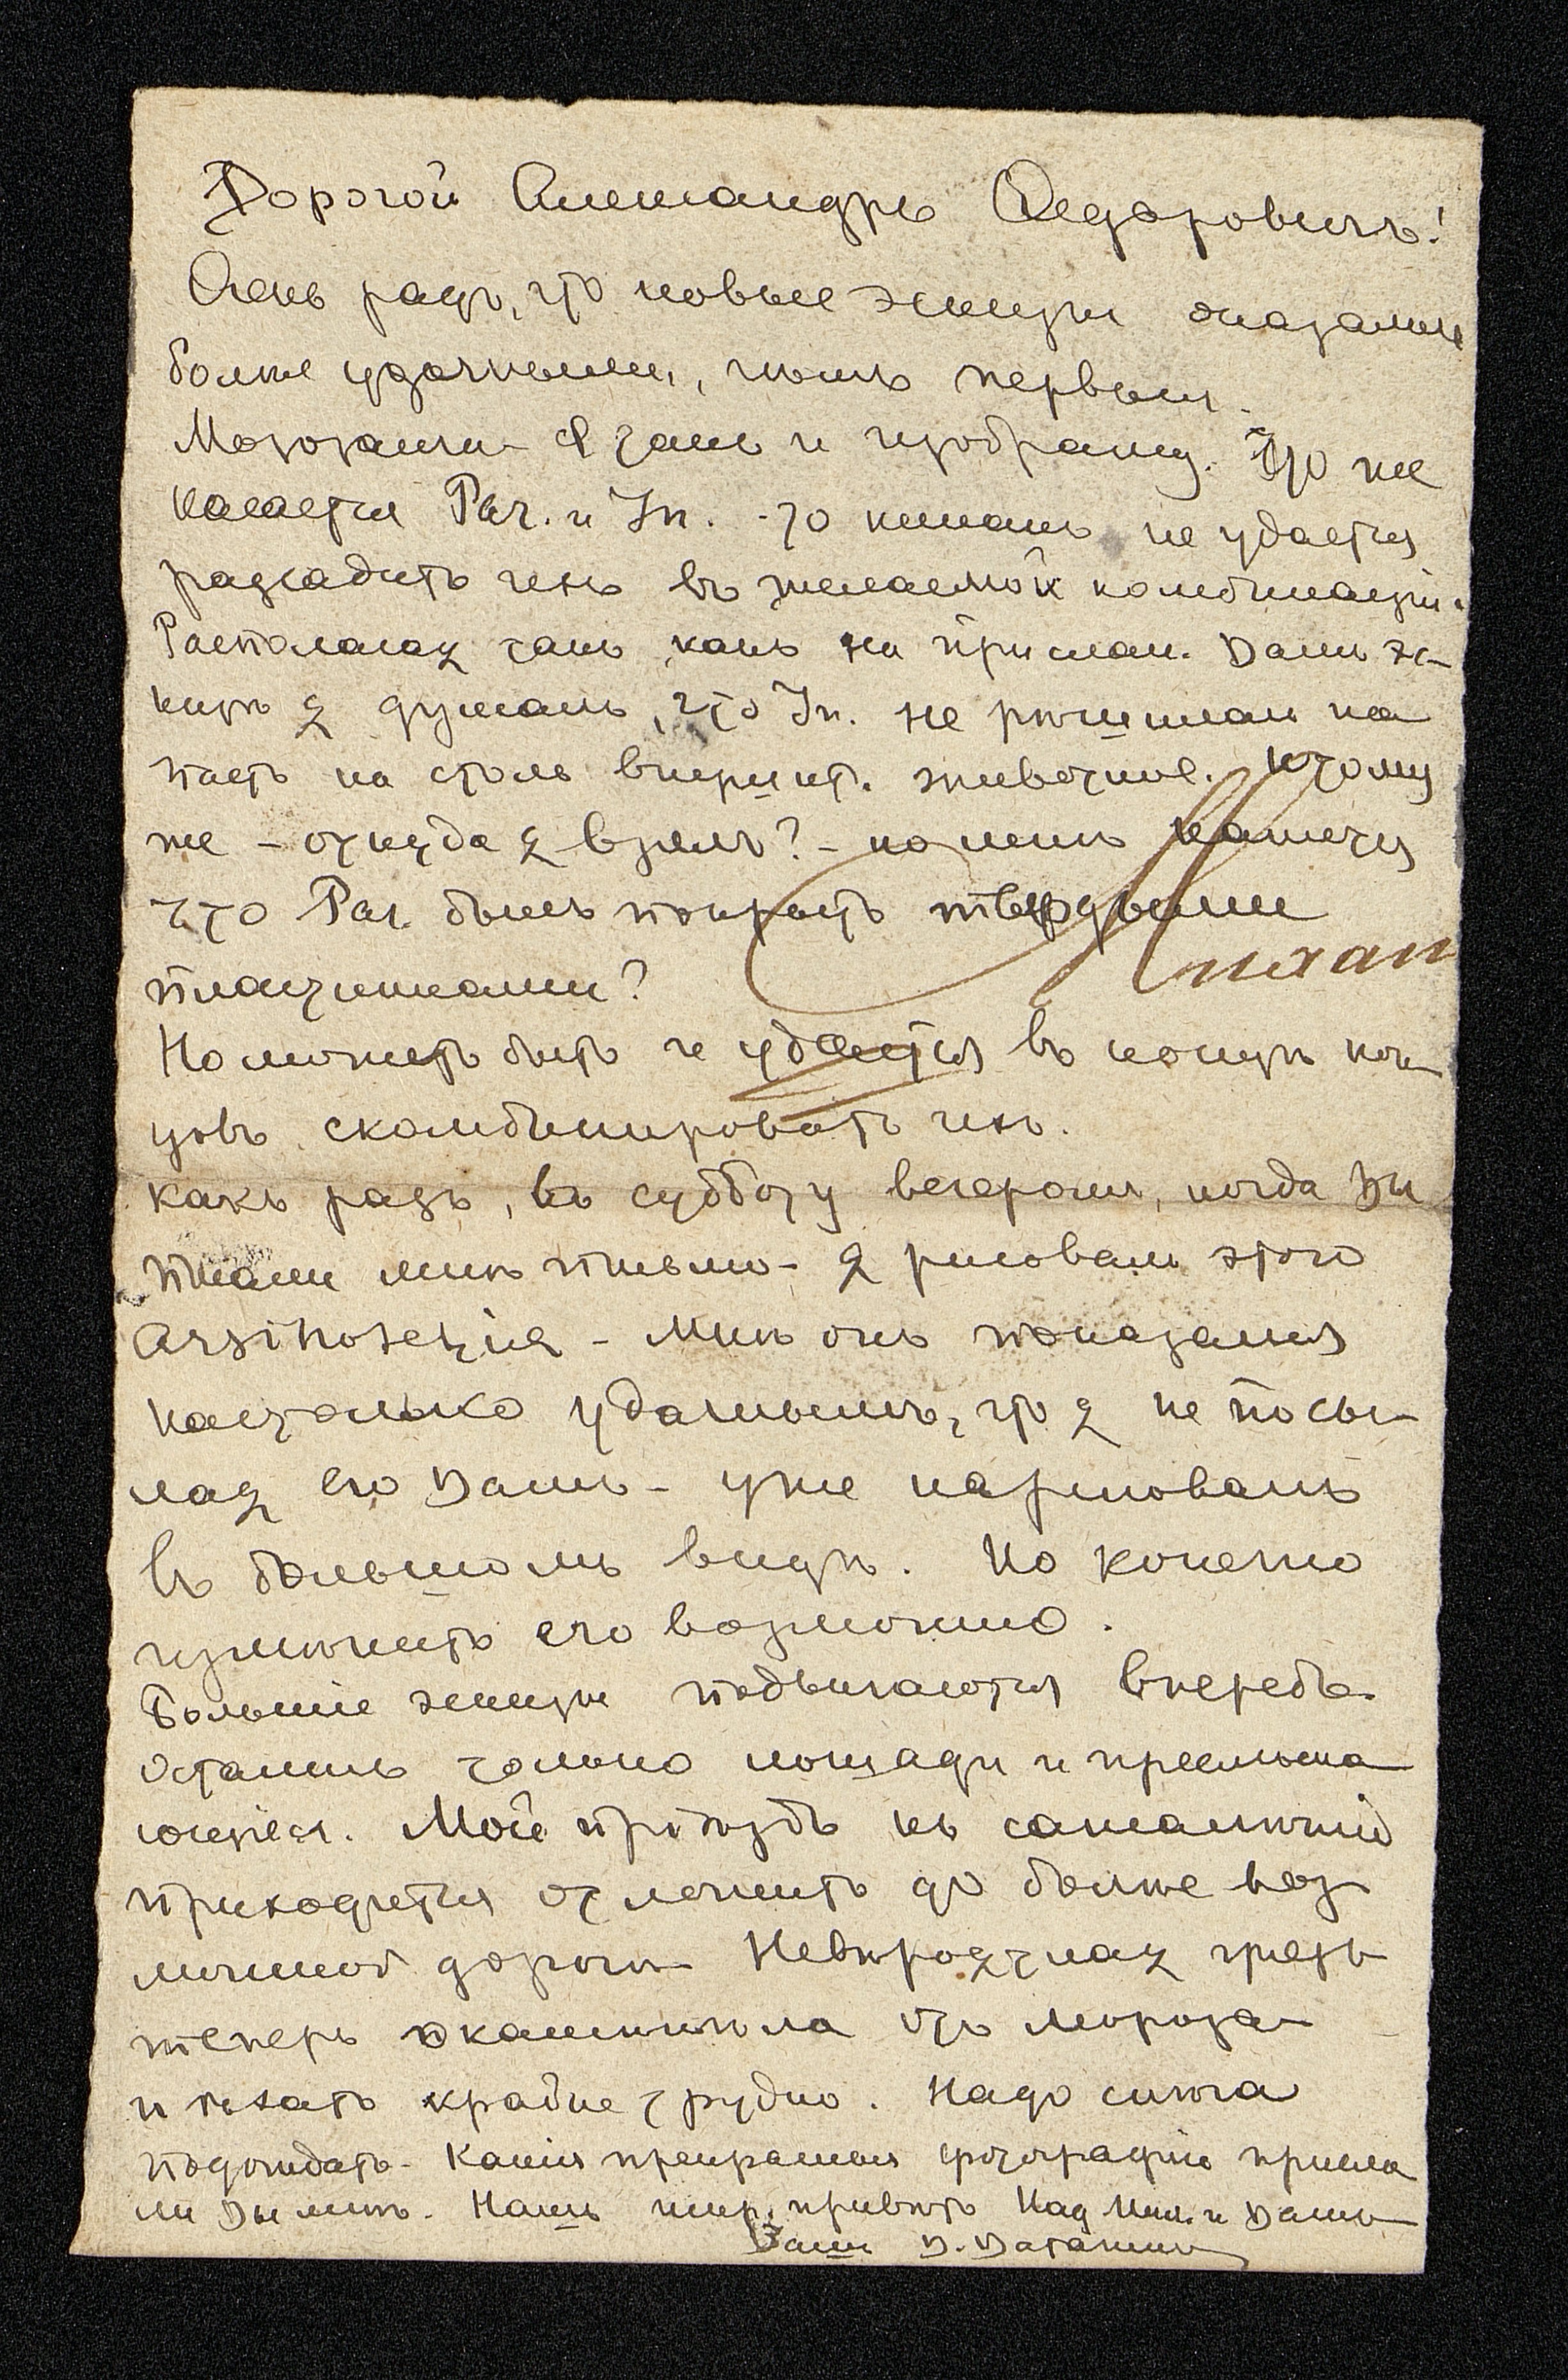 Дорогой Александръ Федоровичъ!
Очень радъ, что новые эскизы оказались
болѣе удачными, чѣмъ первый.
Мозозавра - Я такъ и изображу. Что же
касается Par. и In. - то никакъ не удается
разсадить ихъ въ желаемой комбинаціи.
Располагая такъ, какъ на прислан. Вами эс-
кизѣ я думалъ, что In. не рѣшился на
пасть на столь внушит. животное. Къ тому
же - откуда я взялъ? - но мнѣ кажется
что Par. былъ покрытъ твердыми
пластинками?
Но можетъ быть и удастся въ концѣ кон-
цовъ скомбинировать ихъ.
какъ разъ, въ субботу вечеромъ, когда Вы
писали мнѣ письмо - я рисовалъ этого
Arsinoseция - Мнѣ онъ показался
настолько удачнымъ, что я не посы-
лая его Вамъ - уже нарисовалъ
въ большомъ видѣ. Но конечно
измѣнить его возможно.
Большіе эскизы подвигаются впередъ
Остались только лошади и пресмыка
ющіеся. Мой пріѣздъ къ сожалѣнію
приходится отложить до болѣе воз
можной дороги. Невѣроятная грязь
теперь окаменѣла отъ мороза
и ѣхать крайне трудно. Надо снѣга
подождать. Какія прекрасныя фотографіи присла
ли Вы мнѣ. Нашъ искр. привѣтъ Над. Ник. и Вамъ
Вашъ В. Ватагинъ